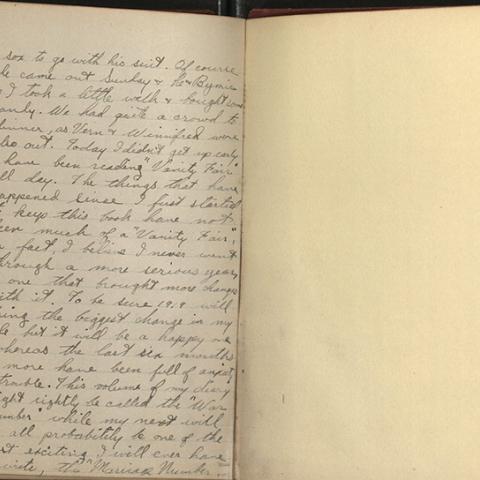 sox to go with his suit. Of course
he came out Sunday & he & Bymie
& I took a little walk & bought some
candy. We had quite a crowd to
dinner, as Vern & Winnifred were
also out. Today I didn't get up early
have been reading "Vanity Fair"
all day. The things that have
happened since I first started
to keep this book have not
been much of a "Vanity Fair",
in fact, I believe I never went
through a more serious year,
one that brought more changes
with it. To be sure 1919 will
bring the biggest change in my
life but it will be a happy one
whereas the last six months
more have been full of anxiety
trouble. This volume of my diary
might rightly be called the "War
Number" while my next will
all probability be one of the
most exciting I will ever have
write, the "Marriage Number"